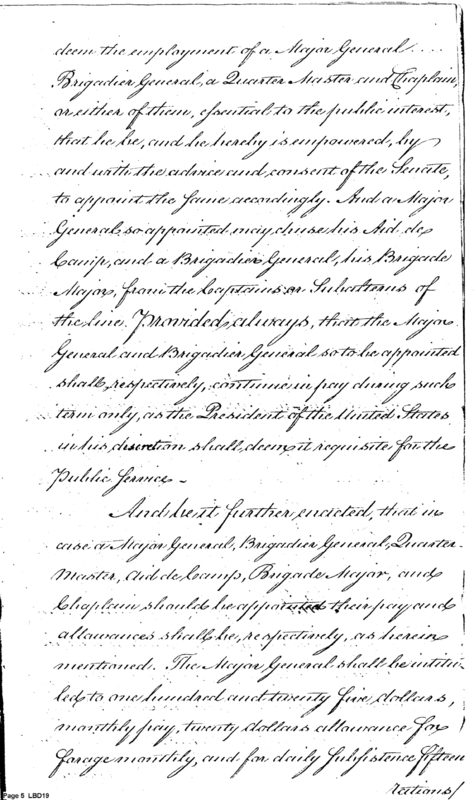 deem the employment of a Major General
Brigadier General, a Quarter Master and Chaplain,
or either of them, essential to the public interest,
that he be, and he hereby is empowered, by
and with the advice and consent of the Senate,
to appoint the same accordingly. And a Major
General so appointed may chuse his Aid de
Camp, and a Brigadier General, his Brigade
Major, from the Captains or Subalterns of
the line. Provided always, that the Major
General and Brigadier General so to be appointed
shall, respectively, continue in pay during such
term only, as the President of the United States
in his discretion shall deem it requisite for the
Public Service -
And be it further enacted, that in
case a Major General, Brigadier General, Quarter
Master, Aid de Camp, Brigade Major, and
Chaplain should be appointed their pay and
allowances shall be, respectively, as herein
mentioned. The Major General shall be intitu-
led to one hundred and twenty five dollars,
monthly pay, twenty dollars allowance for
forage monthly, and for daily Subsistence fifteen
rations/
Page 5 LBD19